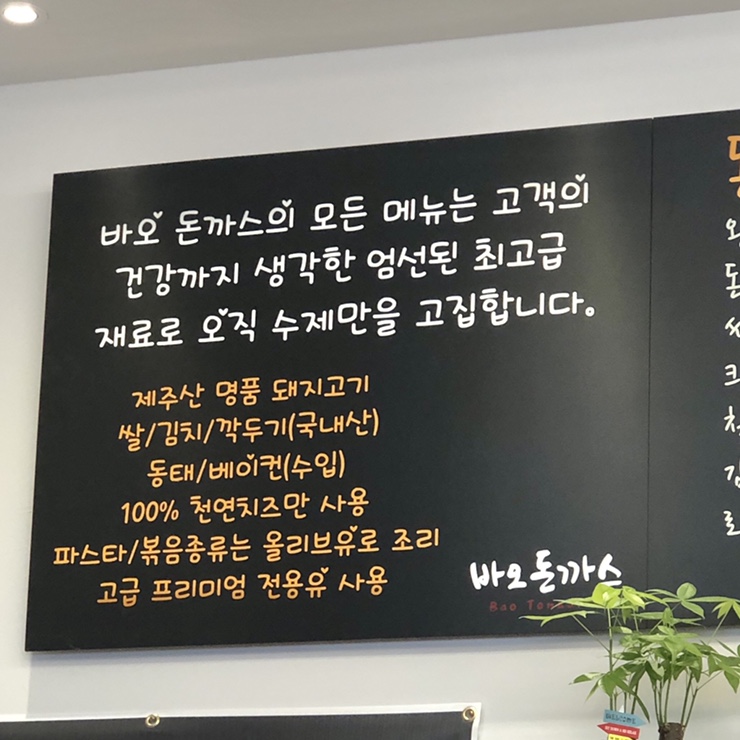 바오 돈까스의 모든 메뉴는 고객의
건강까지 생각한 엄선된 최고급
재료로 오직 수제만을 고집합니다.
제주산 명품 돼지고기
쌀/김치/깍두기(국내산)
동태/베이컨(수입)
100% 천연치즈만 사용
파스타/볶음종류는 올리브유로 조리
고급 프리미엄 전용유 사용
바오돈까스
Bao